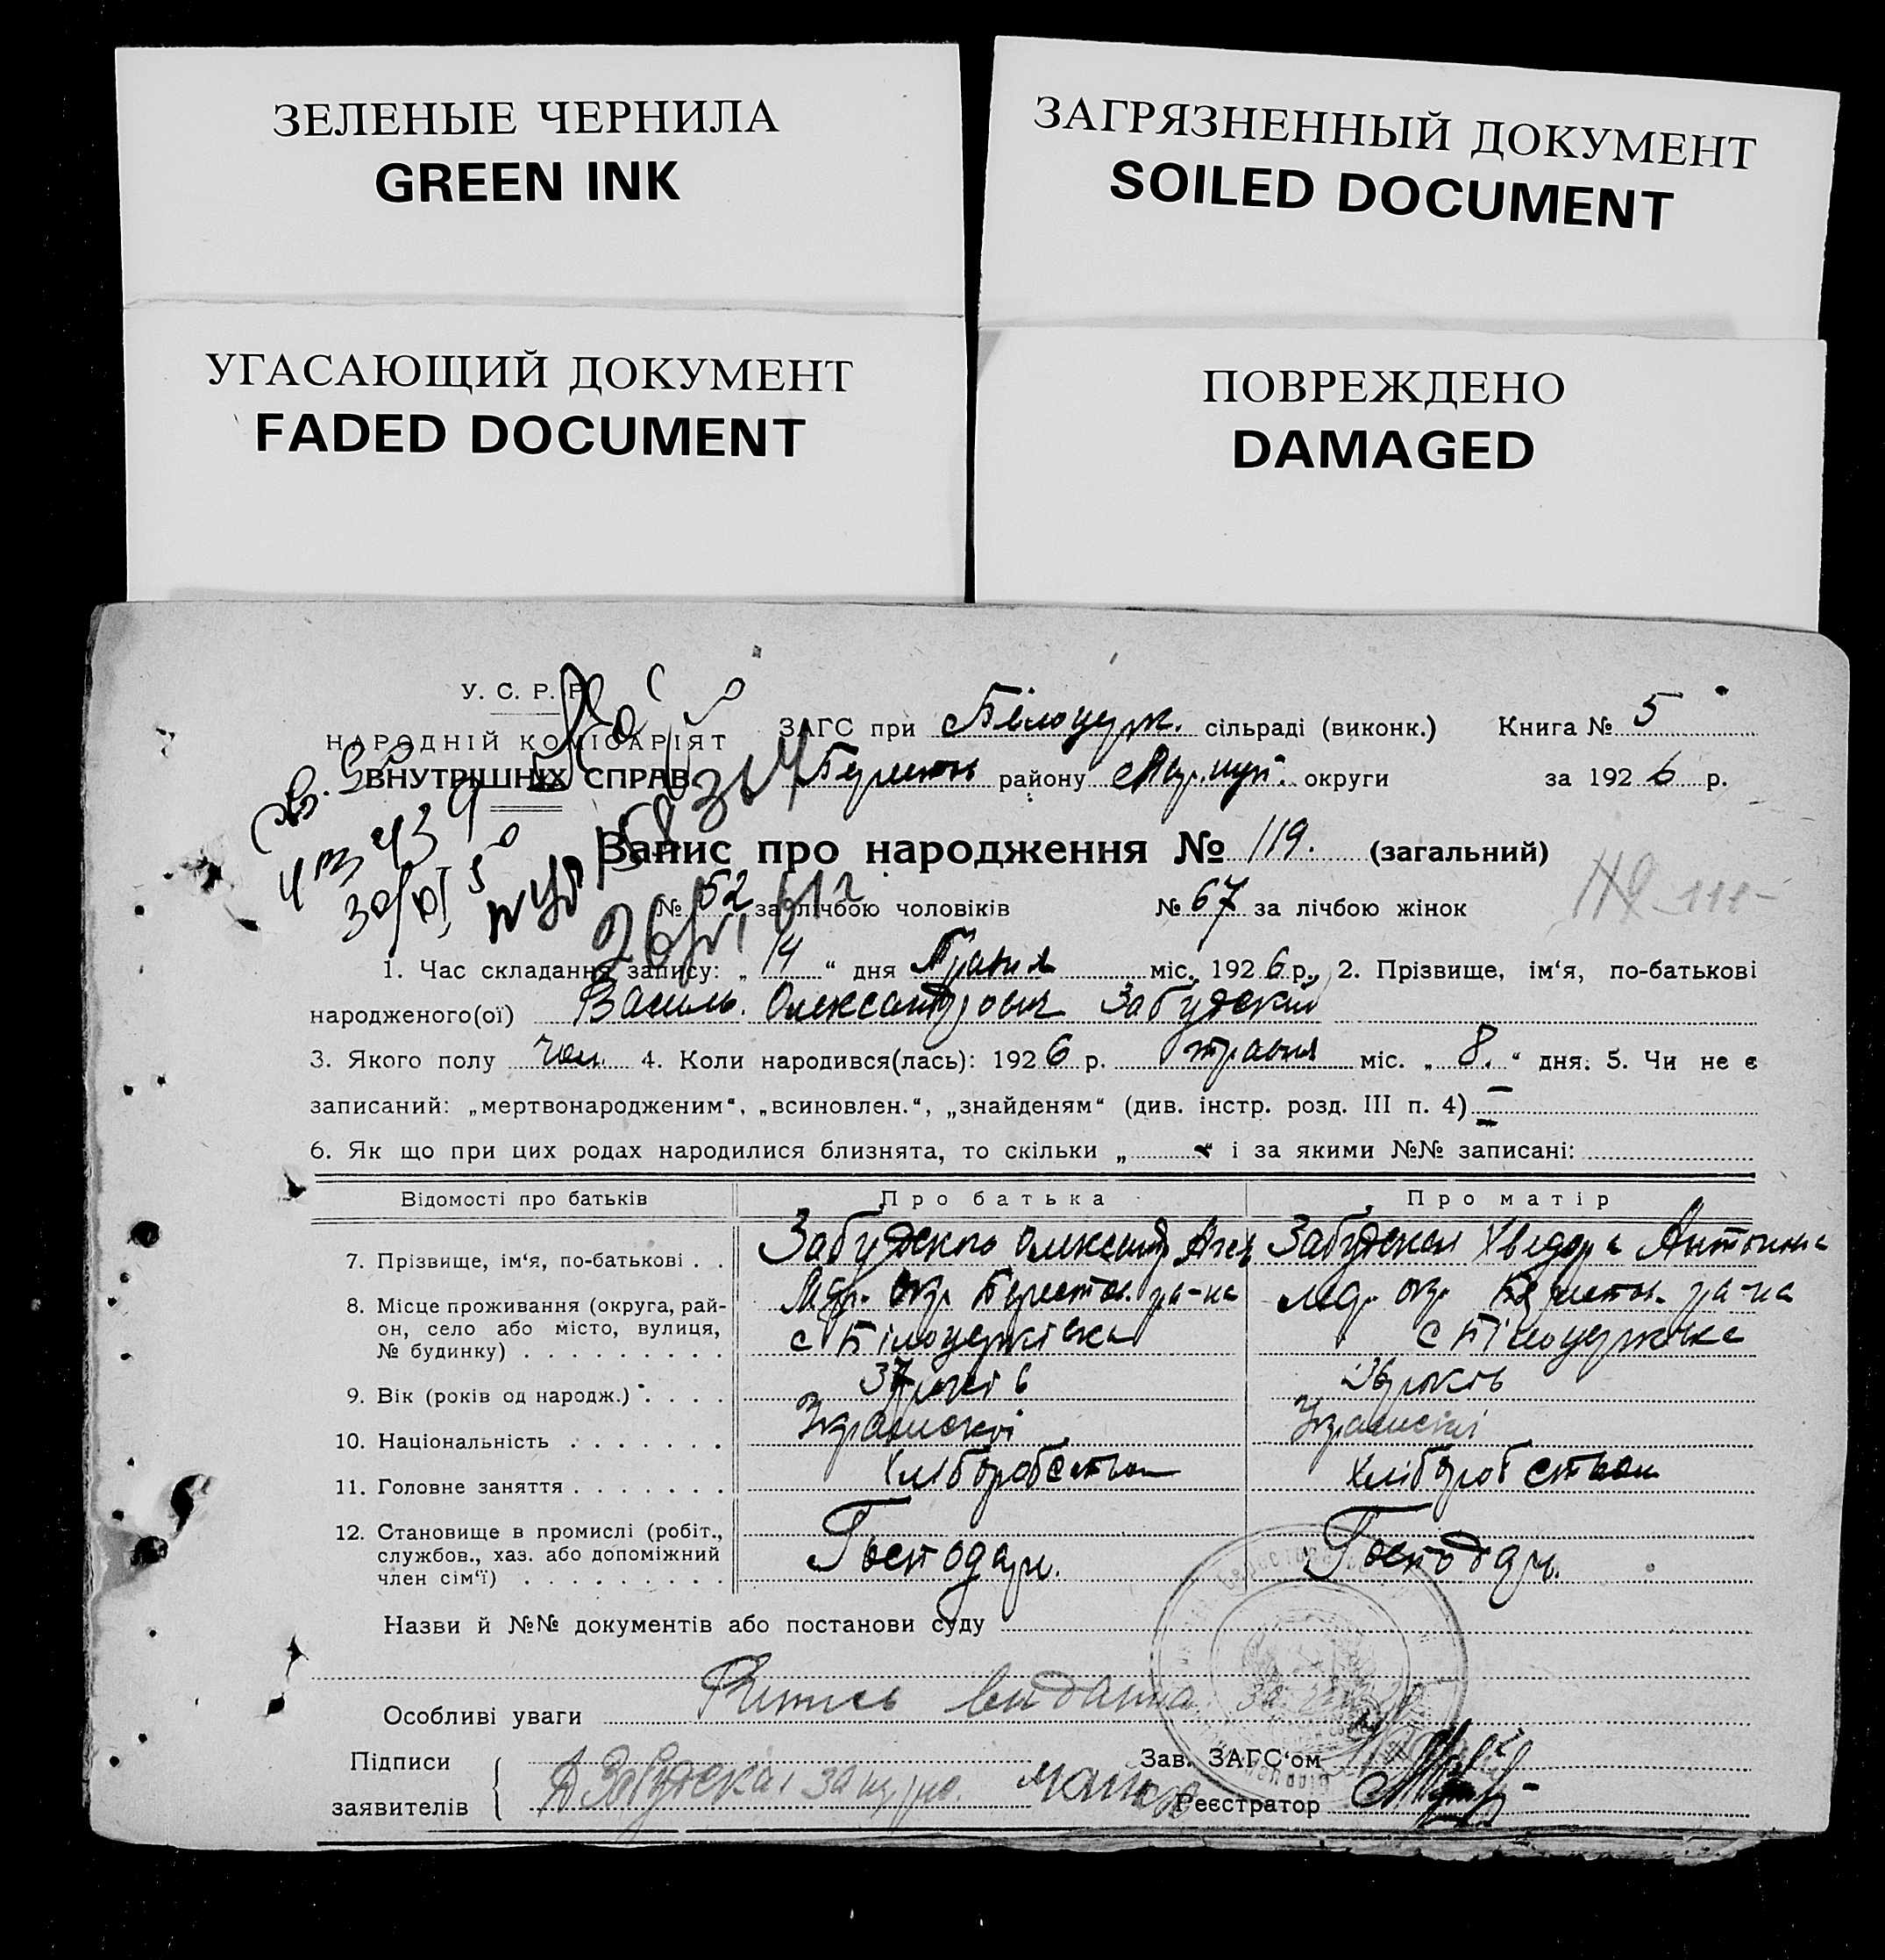 ЗЕЛЕНЫЕ ЧЕРНИЛА
GREEN INK
ЗАГРЯЗНЕННЫЙ ДОКУМЕНТ
SOILED DOCUMENT
УГАСАЮЩИЙ ДОКУМЕНТ
FADED DOCUMENT
ПОВРЕЖДЕНО
DAMAGED
У. С. Р. Р.
НАРОДНІЙ КОМІСАРІЯТ
ВНУТРІШНІХ СПРАВ.
ЗАГС при Білоцерк. сільраді (виконк.) Книга № 5
району округи за 192 6 р.
Запис про народження № 119. (загальний)
№ 52 за лічбою чоловіків № 67 за лічбою жінок
1. Час складання запису: „ 14 “ дня Травня міс. 192 6 р. 2. Прізвище, ім‘я, по-батькові
народженого(ої) Василь. Олександрович Забудский
3. Якого полу чол. 4. Коли народився(лась): 192 6 р. травня міс. „ 8. “ дня. 5. Чи не є
записаний: „мертвонародженим“, „всиновлен.“, „знайденям“ (див. інстр. розд. III п. 4) —
6. Як що при цих родах народилися близнята, то скільки „ “ і за якими №№ записані:
Відомості про батьків Про батька Про матір
7. Прізвище, ім‘я, по-батькові . . Забудского Олександ Забудская Хведора Антонина
8. Місце проживання (округа, рай-
он, село або місто, вулиця,
№ будинку) . . . . . . . . .
окр. Берестов. ра-на окр. Берестов. ра-на
с Білоцерківка с Білоцерківка
9. Вік (років од народж.) . . . . 37 років 36 років
10. Національність . . . . . . . Украінскоі Украінскоі
11. Головне заняття . . . . . . . Хліборобство Хліборобство
12. Становище в промислі (робіт.,
службов., хаз. або допоміжний
член сім‘ї) . . . . . . . . .
Господар. Господар.
Назви й №№ документів або постанови суду
Особливі уваги видана
Підписи
заявителів
Забудская
Зав. ЗАГС‘ом
Реєстратор